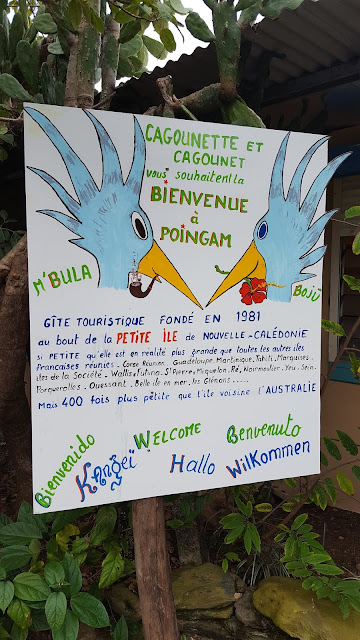 CAGOUNETTE ET
CAGOUNET
vous souhaitent la
BIENVENUE
à
POINGAM
M'BULA
BOJÚ
GÎTE TOURISTIQUE FONDÉ EN 1981
au bout de la PETITE ÎLE de NOUVELLE-CALÉDONIE
si PETITE qu'elle est en réalité plus grande que toutes les autres iles
Francaises réunies. Corse. Réunion. Guadeloupe. Martinique. Tahiti. Marquises.
iles de la Société. Wallis et Futuna. St Pierre et Miquelon. Ré. Noirmoutier. Yeu. Sein.
Porquerolles. Ouessant. Belle ile en mer. les Glénans......
Mais 400 fois plus petite que l'ile voisine l'AUSTRALIE
Bienvenido WELCOME Benvenuto
Hallo WilKommen